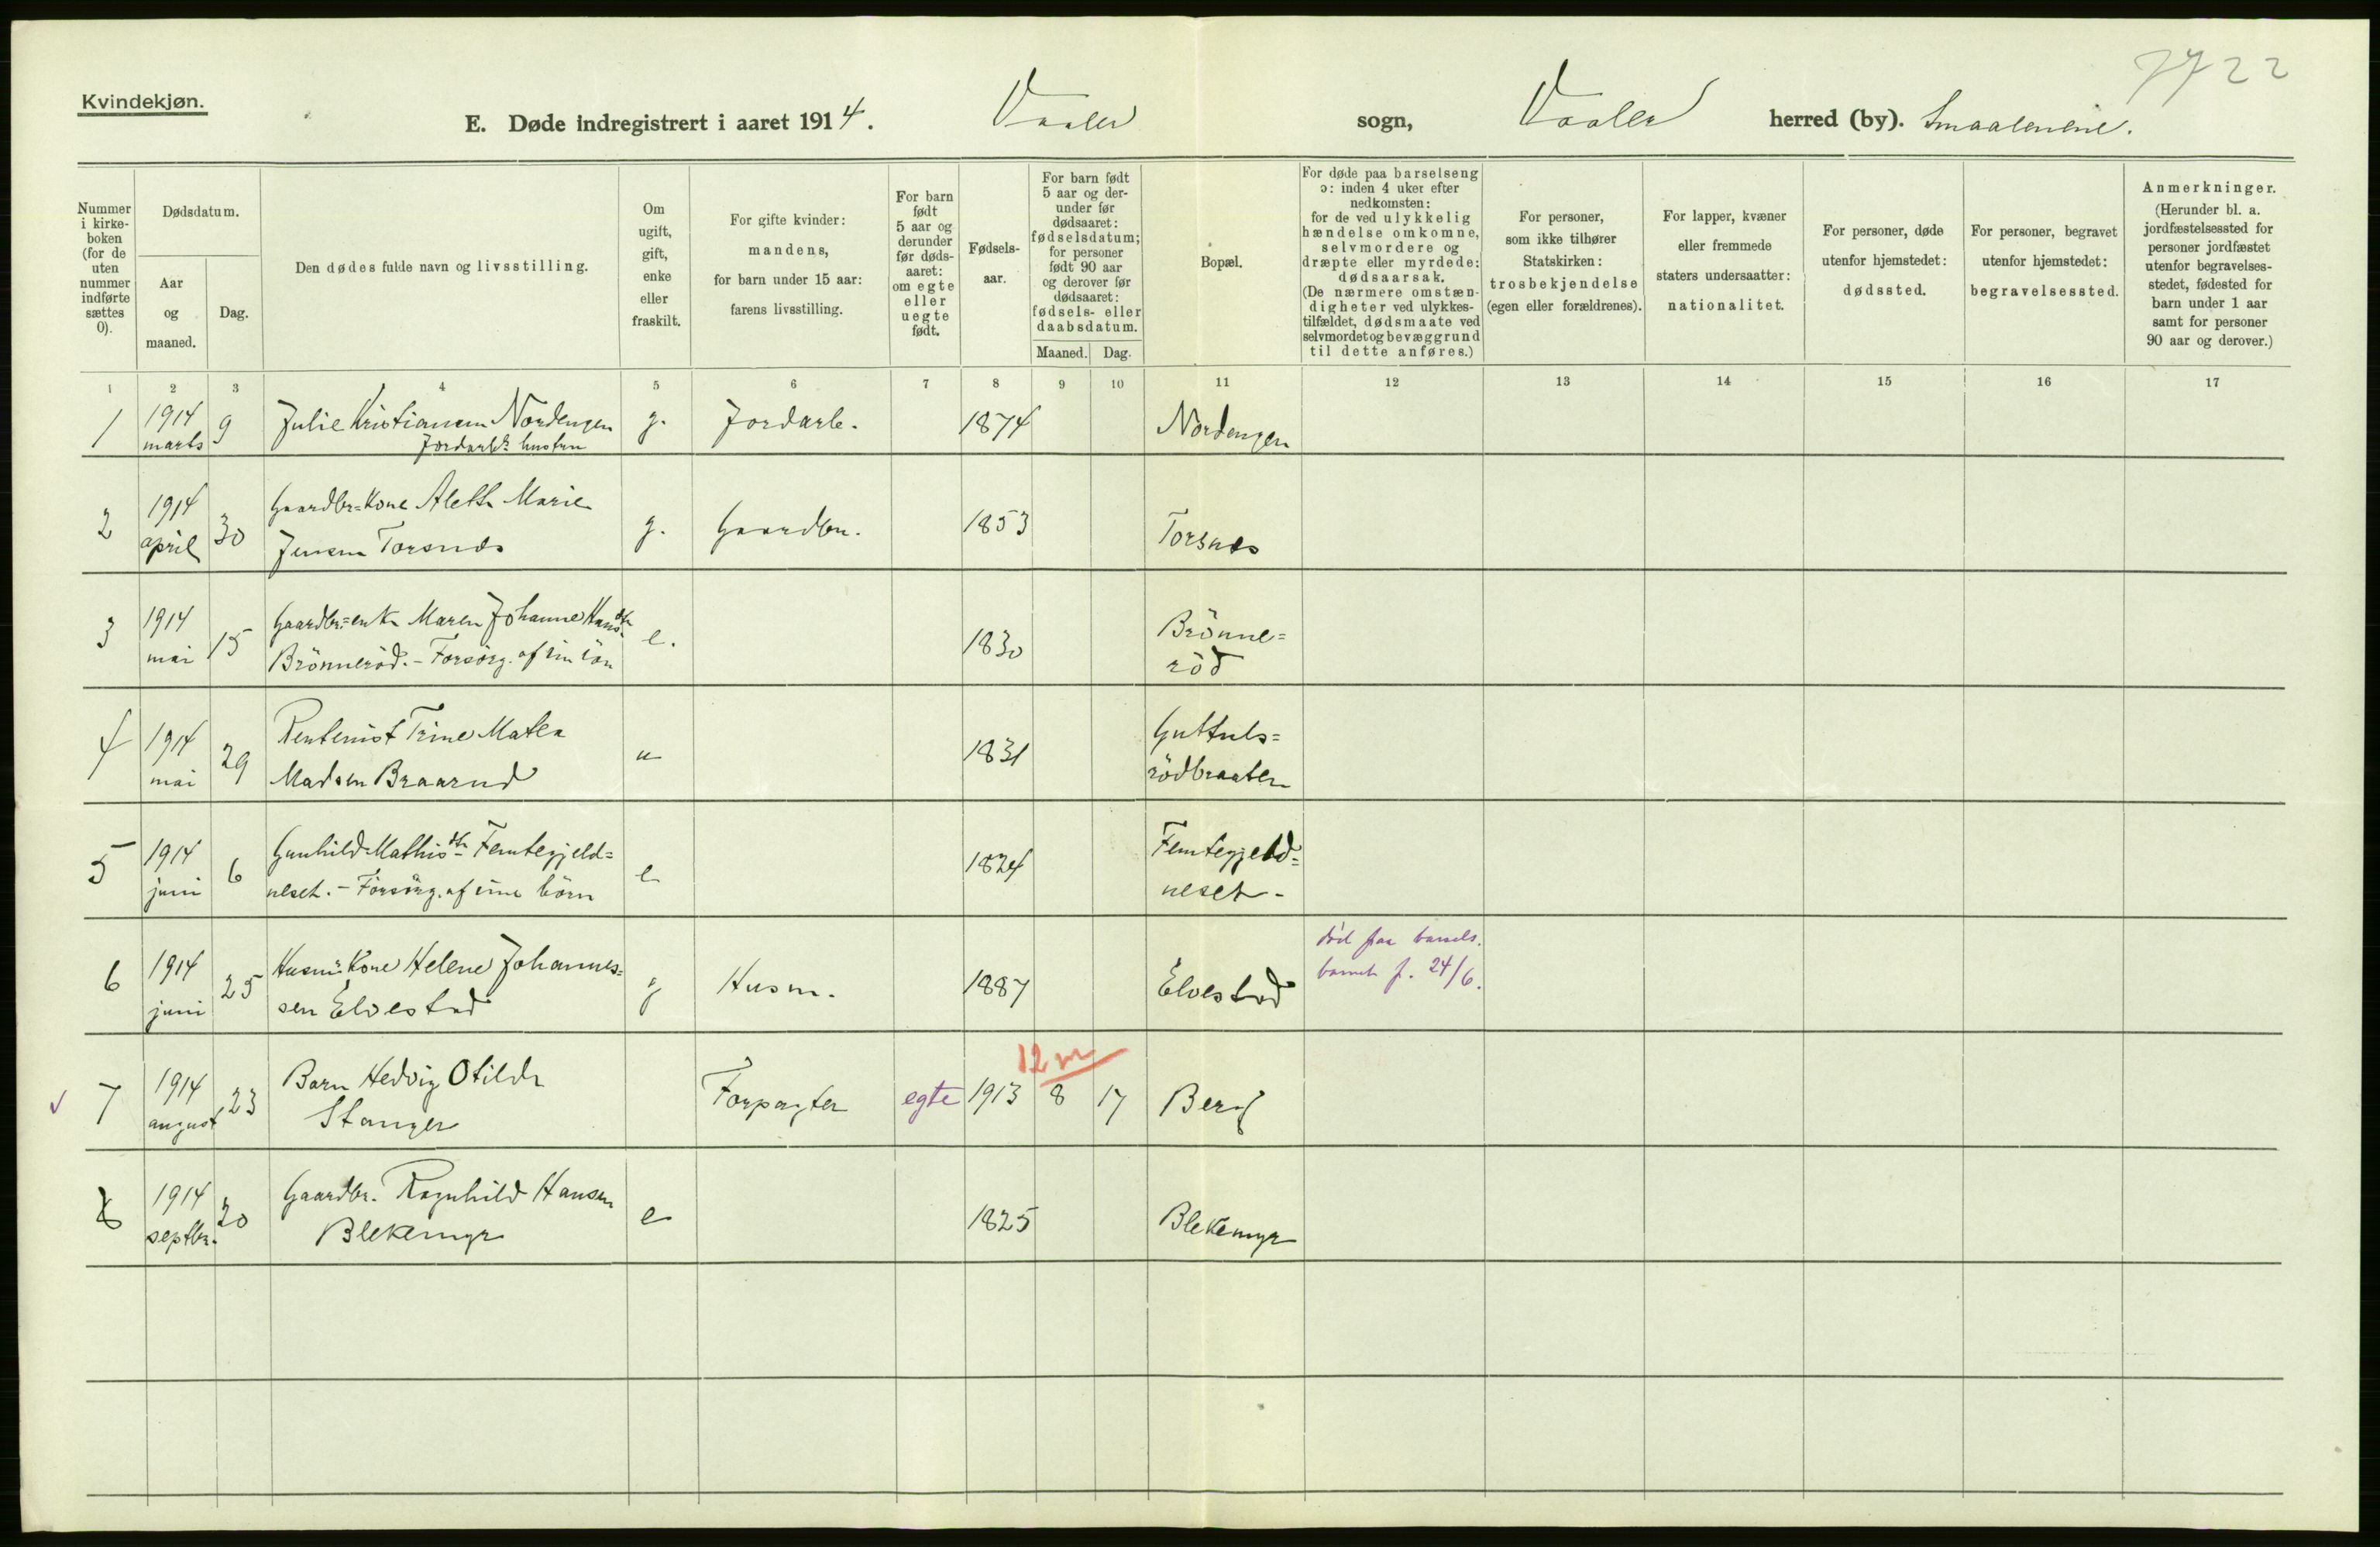 7722
Kvindekjøn.
E. Døde indregistrert i aaret 1914. Vaaler sogn, Vaaler herred (by). Smaalenene.
Nummer
i kirke-
boken
(for de
uten
nummer
indførte
sættes
0).
Dødsdatum.
Aar
og
maaned.
Dag.
Den dødes fulde navn og livsstilling.
Om
ugift,
gift,
enke
eller
fraskilt.
For gifte kvinder:
mandens,
for barn under 15 aar:
farens livsstilling.
For barn
født
5 aar og
derunder
før døds-
aaret:
om egte
eller
uegte
født.
Fødsels-
aar.
For barn født
5 aar og der-
under før
dødsaaret:
fødselsdatum;
for personer
født 90 aar
og derover før
dødsaaret:
fødsels- eller
daabsdatum.
Maaned. Dag.
Bopæl.
For døde paa barselseng
ɔ: inden 4 uker efter
nedkomsten:
for de ved ulykkelig
hændelse omkomne,
selvmordere og
dræpte eller myrdede:
dødsaarsak.
(De nærmere omstæn-
digheter ved ulykkes-
tilfældet, dødsmaate ved
selvmordet og bevæggrund
til dette anføres.)
For personer,
som ikke tilhører
Statskirken:
trosbekjendelse
(egen eller forældrenes).
For lapper, kvæner
eller fremmede
staters undersaatter:
nationalitet.
For personer, døde
utenfor hjemstedet:
dødssted.
For personer, begravet
utenfor hjemstedet:
begravelsessted.
Anmerkninger.
(Herunder bl. a.
jordfæstelsessted for
personer jordfæstet
utenfor begravelses-
stedet, fødested for
barn under 1 aar
samt for personer
90 aar og derover.)
1 2 3 4 5 6 7 8 9 10 11 12 13 14 15 16 17
1 1914 9 Julie Kristiansen Nordengen g. Jordarb. 1874 Nordengen
marts Jordarb.s hustru
2 1914 30 Gaardbr=kone Aleth Marie g. Gaardbr. 1853 Torsnes
april Jensen Torsnes
3 1914 15 Gaardbr=enke Maren Johanne Hansdtr e. 1830 Brönne=
mai Brönneröd. - Forsörg. af sin sön röd
4 1914 29 Rentenist Trine Matea u 1831 Guttuls=
mai Madsen Braarud rödbraaten
5 1914 6 Gunhild Mathisdtr Femtegjeld= e 1824 Femtegjeld=
juni neset. - Forsörg. af sine börn neset -
6 1914 25 Husm. kone Helene Johannes= g Husm. 1887 Elvestad död paa barsels.
juni sen Elvestad barnet f. 24/6.
12 m
7 1914 23 Barn Hedvig Otilde Forpagter egte 1913 8 17 Berg
august Stanger
8 1914 20 Gaardbr. Ragnhild Hansen e 1825 Blekemyr
septbr. Blekemyr